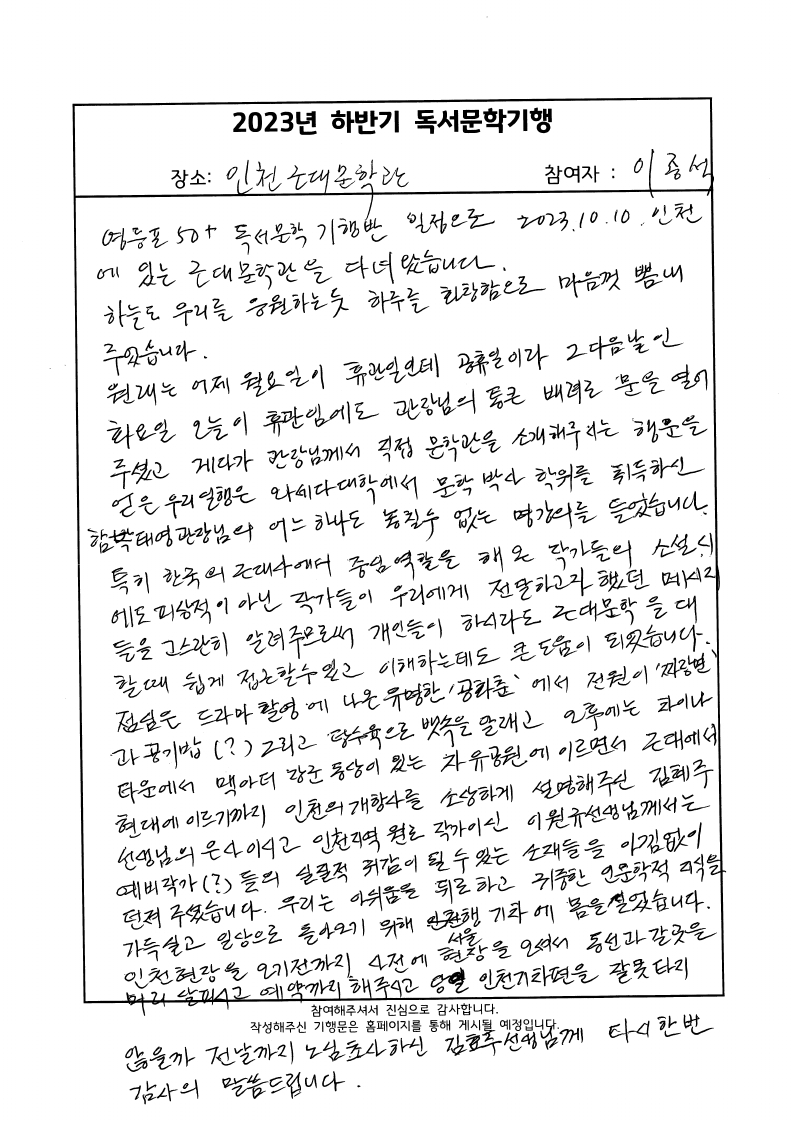 2023년 하반기 독서문학기행
장소: 인천근대문학관 참여자 : 이종석
영등포 50+ 독서문학 기행반 일정으로 2023.10.10. 인천
에 있는 근대문학관을 다녀왔습니다.
하늘도 우리를 응원하는듯 하루를 화창함으로 마음껏 뽐내
주었습니다.
원래는 어제 월요일이 휴관일인데 공휴일이라 그다음날인
화요일 오늘이 휴관임에도 관장님의 통큰 배려로 문을 열어
주셨고 게다가 관장님께서 직접 문학관을 소개해주시는 행운을
얻은 우리일행은 와세다대학에서 문학박사 학위를 취득하신
함태영관장님의 어느하나도 놓칠수 없는 명강의를 들었습니다.
특히 한국의 근대사에서 중심역할을 해온 작가들의 소설, 시
에도 피상적이 아닌 작가들이 우리에게 전달하고자 했던 메시지
들을 고스란히 알려주므로써 개인들이 하시라도 근대문학을 대
할때 쉽게 접근할수있고 이해하는데도 큰 도움이 되었습니다.
점심은 드라마 촬영에 나온 유명한 '공화춘' 에서 전원이 '짜장면'
과 공기밥 (?) 그리고 탕수육으로 뱃속을 달래고 오후에는 차이나
타운에서 맥아더 장군 동상이 있는 자유공원에 이르면서 근대에서
현대에 이르기까지 인천의 개항사를 소상하게 설명해주신 김혜주
선생님의 은사이시고 인천지역 원로 작가이신 이원규선생님께서는
예비작가(?) 들의 실질적 귀감이 될 수 있는 소재들을 아낌없이
던져 주셨습니다. 우리는 아쉬움을 뒤로하고 귀중한 인문학적 지식을
가득싣고 일상으로 돌아오기 위해 서울행 기차에 몸을 실었습니다.
인천현장을 오기전까지 사전에 현장을 오셔서 동선과 갈곳을
미리 살피시고 예약까지 해주시고 당일 인천기차편을 잘못타지
참여해주셔서 진심으로 감사합니다.
작성해주신 기행문은 홈페이지를 통해 게시될 예정입니다.
않을까 전날까지 노심초사하신 김효주선생님께 다시한번
감사의 말씀드립니다.